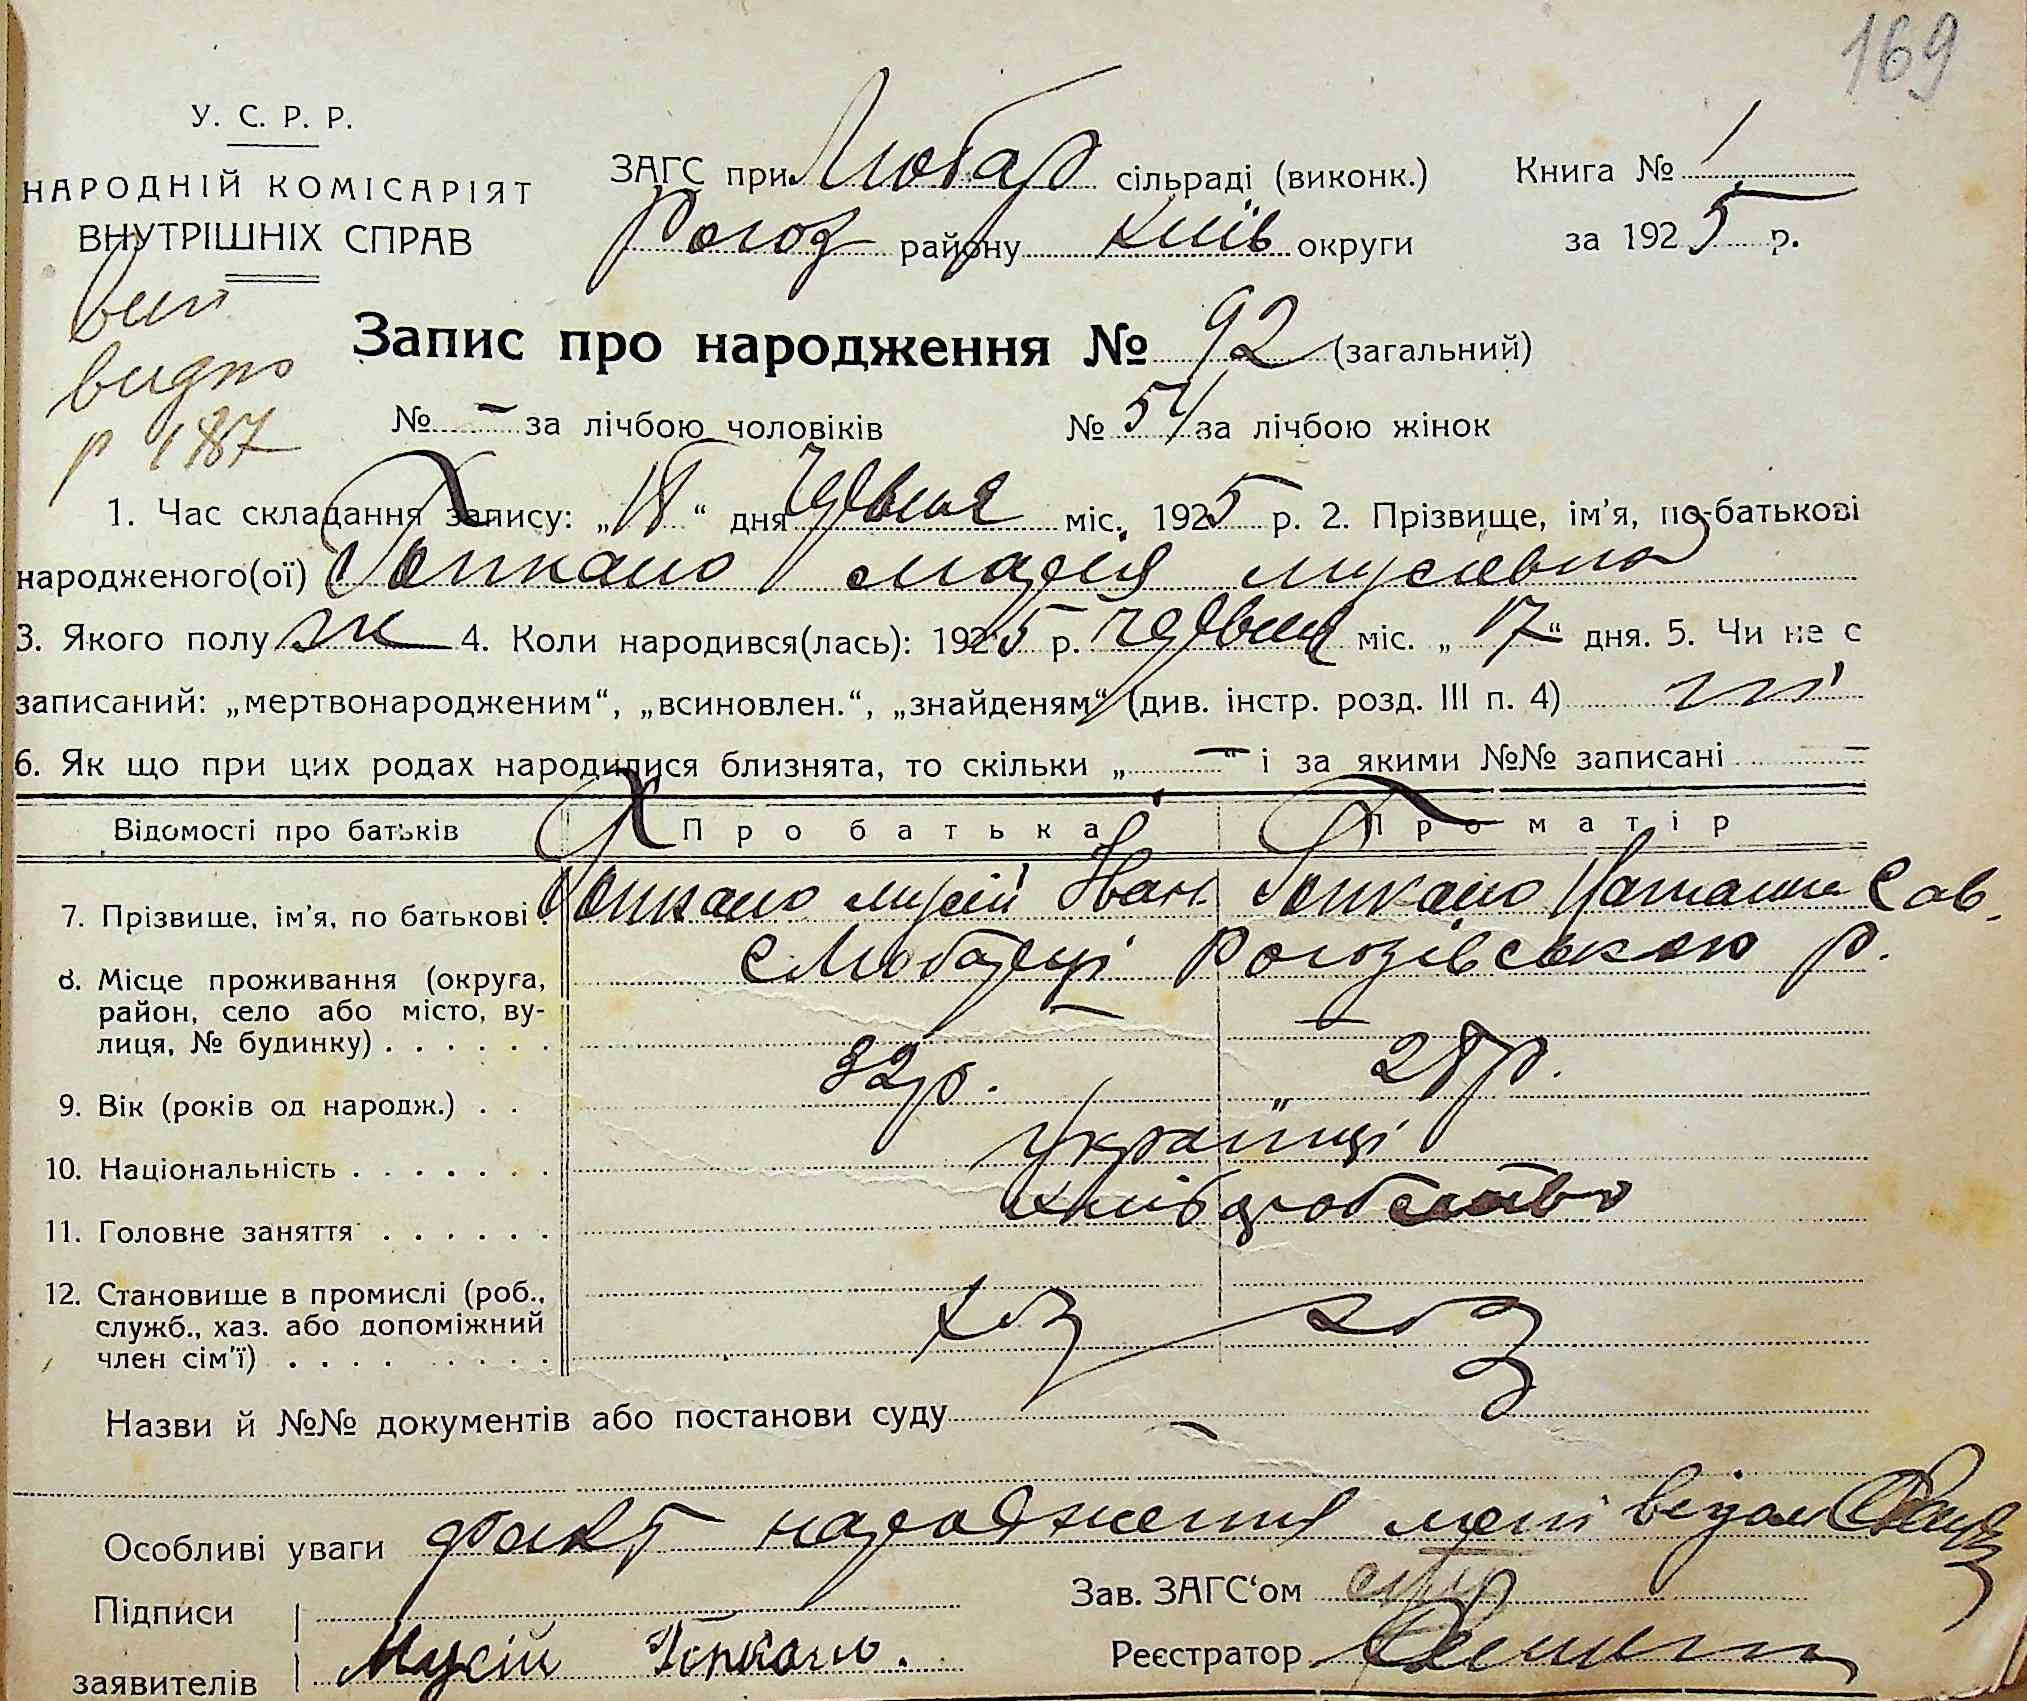 169
У. С. Р. Р.
НАРОДНІЙ КОМІСАРІЯТ
ВНУТРІШНІХ СПРАВ
ЗАГС при Любар сільраді (виконк.)
Рогоз району Київ округи
Книга № 1
за 1925 р.
вип
видно
р 487
Запис про народження № 92 (загальний)
№ – за лічбою чоловіків № 54 за лічбою жінок
1. Час складання запису: „18“ дня червня міс. 1925 р. 2. Прізвище, ім'я, по-батькові
народженого(ої) Гопкало Марія Мусіївна
3. Якого полу ж 4. Коли народився(лась): 1925 р. червня міс. „17“ дня. 5. Чи не є
записаний: „мертвонародженим“, „всиновлен.“, „знайденям“ (див. інстр. розд. III п. 4) ні
6. Як що при цих родах народилися близнята, то скільки „–“ і за якими №№ записані –
Відомості про батьків Про батька Про матір
7. Прізвище, ім'я, по батькові. Гопкало Мусій Іван. Гопкало Наталія Сав.
8. Місце проживання (округа, с Любарці Рогозівського р.
район, село або місто, ву-
лиця, № будинку) . . . . . .
9. Вік (років од народж.) . . 32 р. „ 28 р.
10. Національність . . . . . . . Українці
11. Головне заняття . . . . . . хліборобство
12. Становище в промислі (роб.,
служб., хаз. або допоміжний хаз хаз
член сім'ї) . . . . . . . . .
Назви й №№ документів або постанови суду –
Особливі уваги факт народження мені відом
Підписи Зав. ЗАГС‘ом
заявителів Мусій Гопкало. Реєстратор